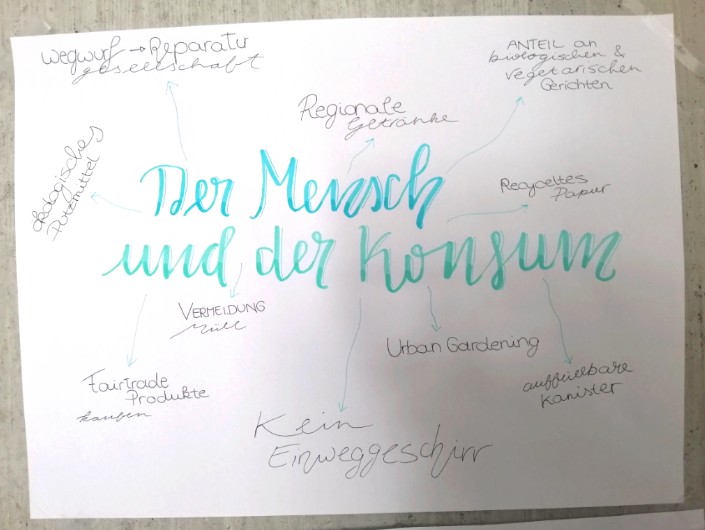 Wegwurf → Reparatur
gesellschaft
ANTEIL an
biologischen &
vegetarischen
Gerichten
Regionale
Getränke
ökologisches
Putzmittel
Der Mensch
und der Konsum
Recyceltes
Papier
VERMEIDUNG
Müll
Urban Gardening
Fairtrade
Produkte
kaufen
auffüllbare
Kanister
Kein
Einweggeschirr